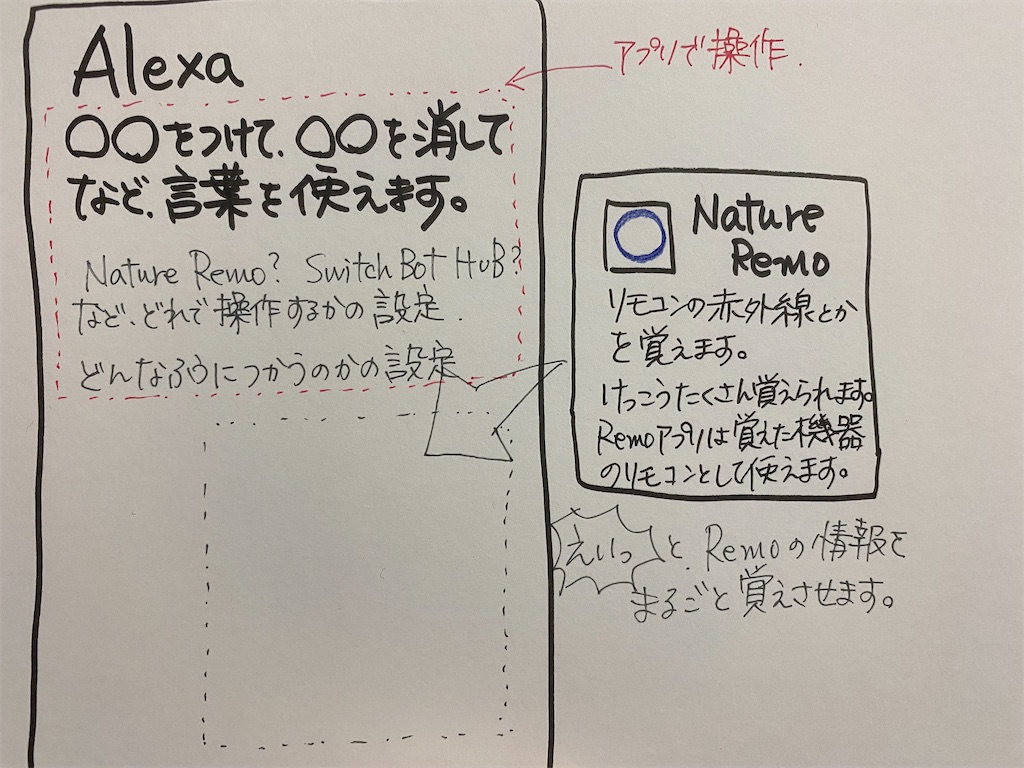 Alexa
アプリで操作.
○○をつけて、○○を消して
など、言葉を使えます。
Nature Remo? SwitchBot HuB?
など、どれで操作するかの設定.
どんなふうにつかうのかの設定
Nature
Remo
リモコンの赤外線とか
を覚えます。
けっこうたくさん覚えられます。
Remoアプリは覚えた機器
のリモコンとして使えます。
えいっと Remoの情報を
まるごと覚えさせます。